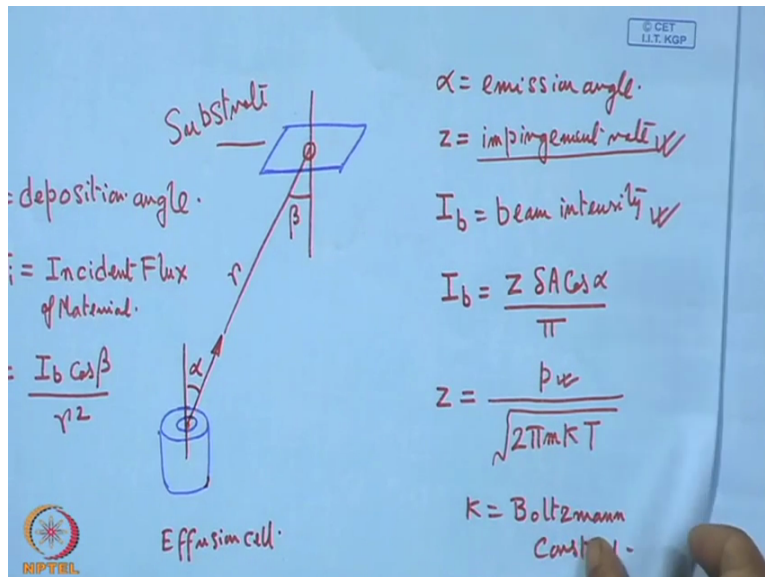 © CET
I.I.T. KGP
Substrate
= deposition angle.
= Incident Flux
of Material.
= I_b Cos β / r²
β
r
α
Effusion cell.
α = emission angle.
Z = impingement rate
I_b = beam intensity
I_b = Z δA Cos α / π
Z = p / √(2πmKT)
K = Boltzmann
NPTEL